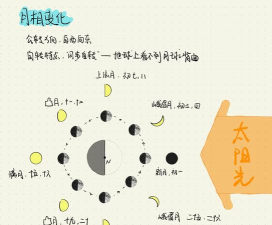 月相变化
公转方向,自西向东
自转特点,同步自转 — 地球上看不到月球背面
上弦月,初七、八
凸月,十一、十二
蛾眉月,初三、四
满月,十五、十六
新月,初一
太阳光
N
凸月,十九、二十
蛾眉月 二十五、二十六